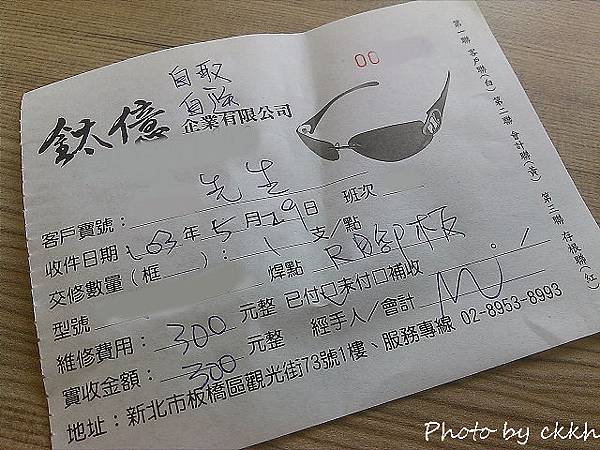 自取
自
00
鈦億 企業有限公司
第一聯 客戶聯(白) 第二聯 會計聯(黃) 第二聯 存根聯(紅)
客戶寶號： 先生
收件日期 103年 5月 29日 班次
交修數量(框 )： 1 支/點
型號 焊點 R腳板
維修費用： 300 元整 已付口未付口補收
實收金額： 300 元整 經手人/會計
地址：新北市板橋區觀光街73號1樓、服務專線 02-8953-8993
Photo by ckkh